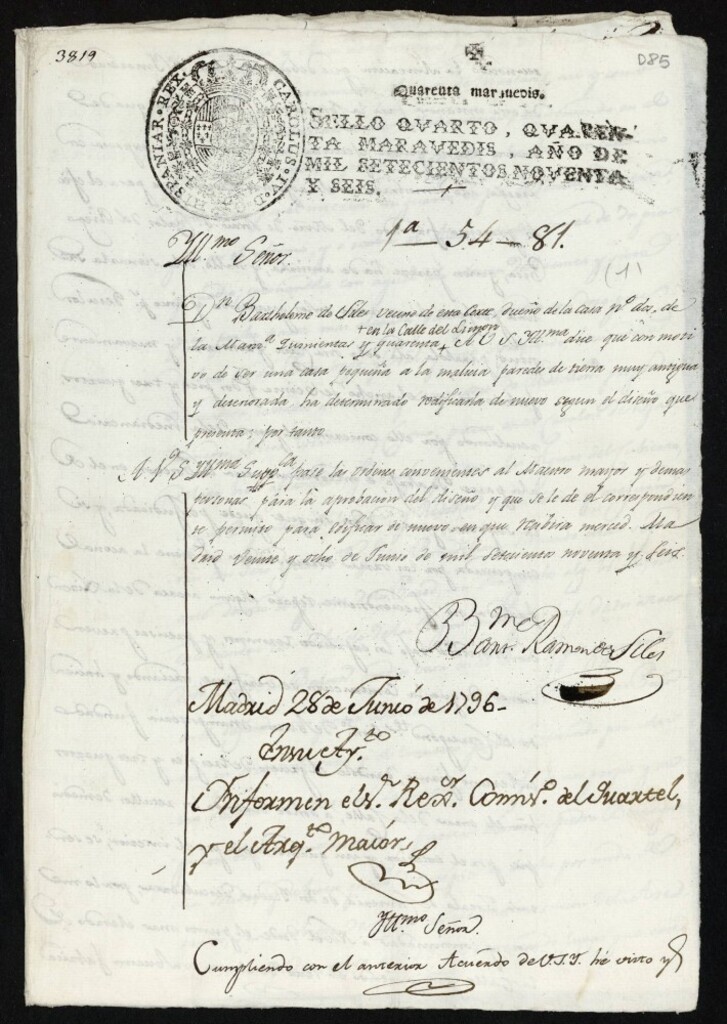 3819
D85
CAROLUS IV D HISPANIAR REX
Quarenta maravedis.
SELLO QVARTO, QVAREN-
TA MARAVEDIS, AÑO DE
MIL SETECIENTOS NOVENTA
Y SEIS.
1ª - 54 - 81.
Yll.mo Señor.
(1)
Dn Bartholome de Siles vecino de esta Corte, dueño de la casa nº dos, de
+ en la Calle del Limon
la Manz.ª Quinientas y quarenta + A V. S. Yll.ma dice que con moti
vo de ser una casa pequeña a la malicia paredes de tierra muy antigua
y deteriorada ha determinado redificarla de nuevo segun el diseño que
presenta: por tanto
A V. S. Yll.ma Supp.ca pase las ordenes convenientes al Maestro mayor y demas
personas para la aprobacion del diseño y que se le de el correspondien
te permiso para edificar de nuevo en que recibira merced. Ma
drid veinte y ocho de Junio de mil setecientos noventa y seis.
Ramon de Siles
Madrid 28 de Junio de 1796-
En su Ay.to
Informen el S.r Rex.or Comis.o del Quartel,
y el Arq.to Maior,
Yll.mo Señor.
Cumpliendo con el anterior Acuerdo de V.S.Y. hé visto y